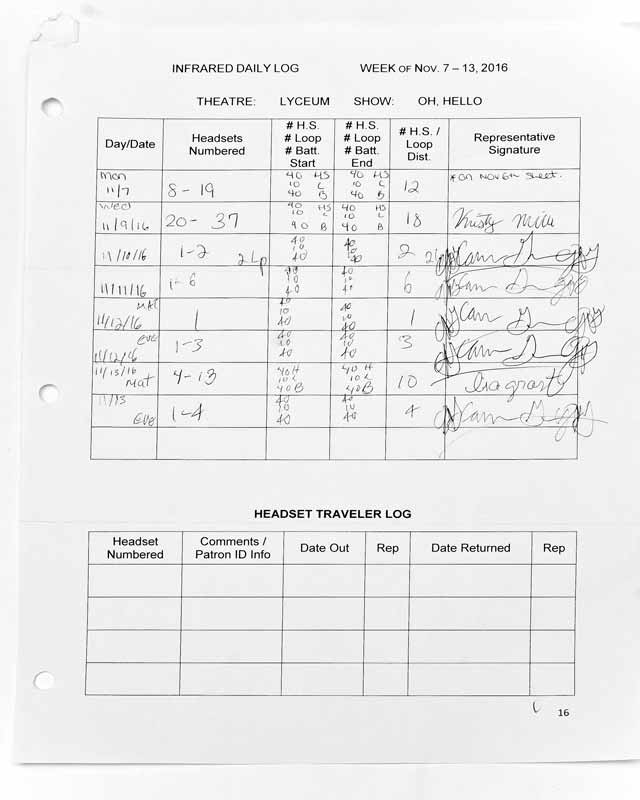 INFRARED DAILY LOG WEEK OF NOV. 7 – 13, 2016
THEATRE: LYCEUM SHOW: OH, HELLO
Day/Date Headsets Numbered # H.S. # Loop # Batt. Start # H.S. # Loop # Batt. End # H.S. / Loop Dist. Representative Signature
Mon 11/7 8 - 19 40 HS 10 L 40 B 40 HS 10 L 40 B 12 * on Nov 6th sheet.
Wed 11/9/16 20 - 37 40 HS 10 L 40 B 40 HS 10 L 40 B 18 Kristy
11/10/16 1-2 2 Lp 40 10 40 40 10 40 2
11/11/16 1-6 40 10 40 40 10 40 6
Mat 11/12/16 1 40 10 40 40 10 40 1
Eve 11/12/16 1-3 40 10 40 40 10 40 3
11/13/16 Mat 4-13 40H 10L 40B 40H 10L 40B 10
11/13 Eve 1-4 40 10 40 40 10 40 4
HEADSET TRAVELER LOG
Headset Numbered Comments / Patron ID Info Date Out Rep Date Returned Rep
16